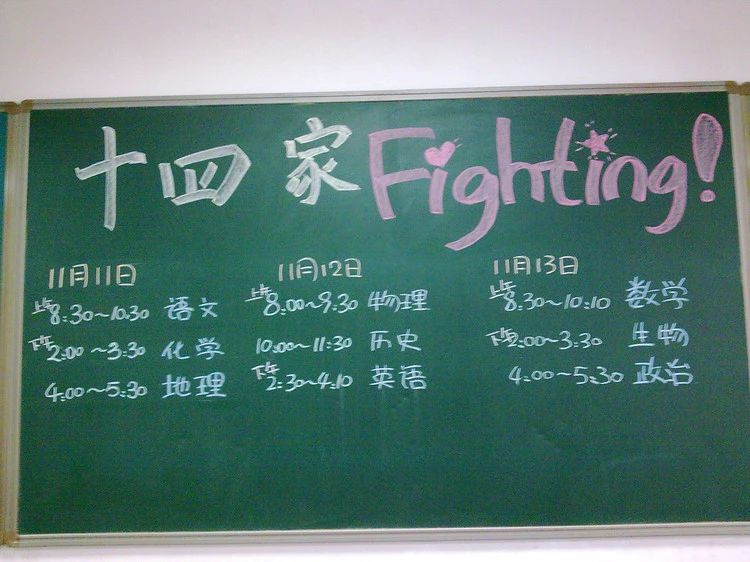 十四家Fighting!
11月11日
上午8:30~10:30 语文
下午2:00~3:30 化学
4:00~5:30 地理
11月12日
上午8:00~9:30 物理
10:00~11:30 历史
下午2:30~4:10 英语
11月13日
上午8:30~10:10 数学
下午2:00~3:30 生物
4:00~5:30 政治